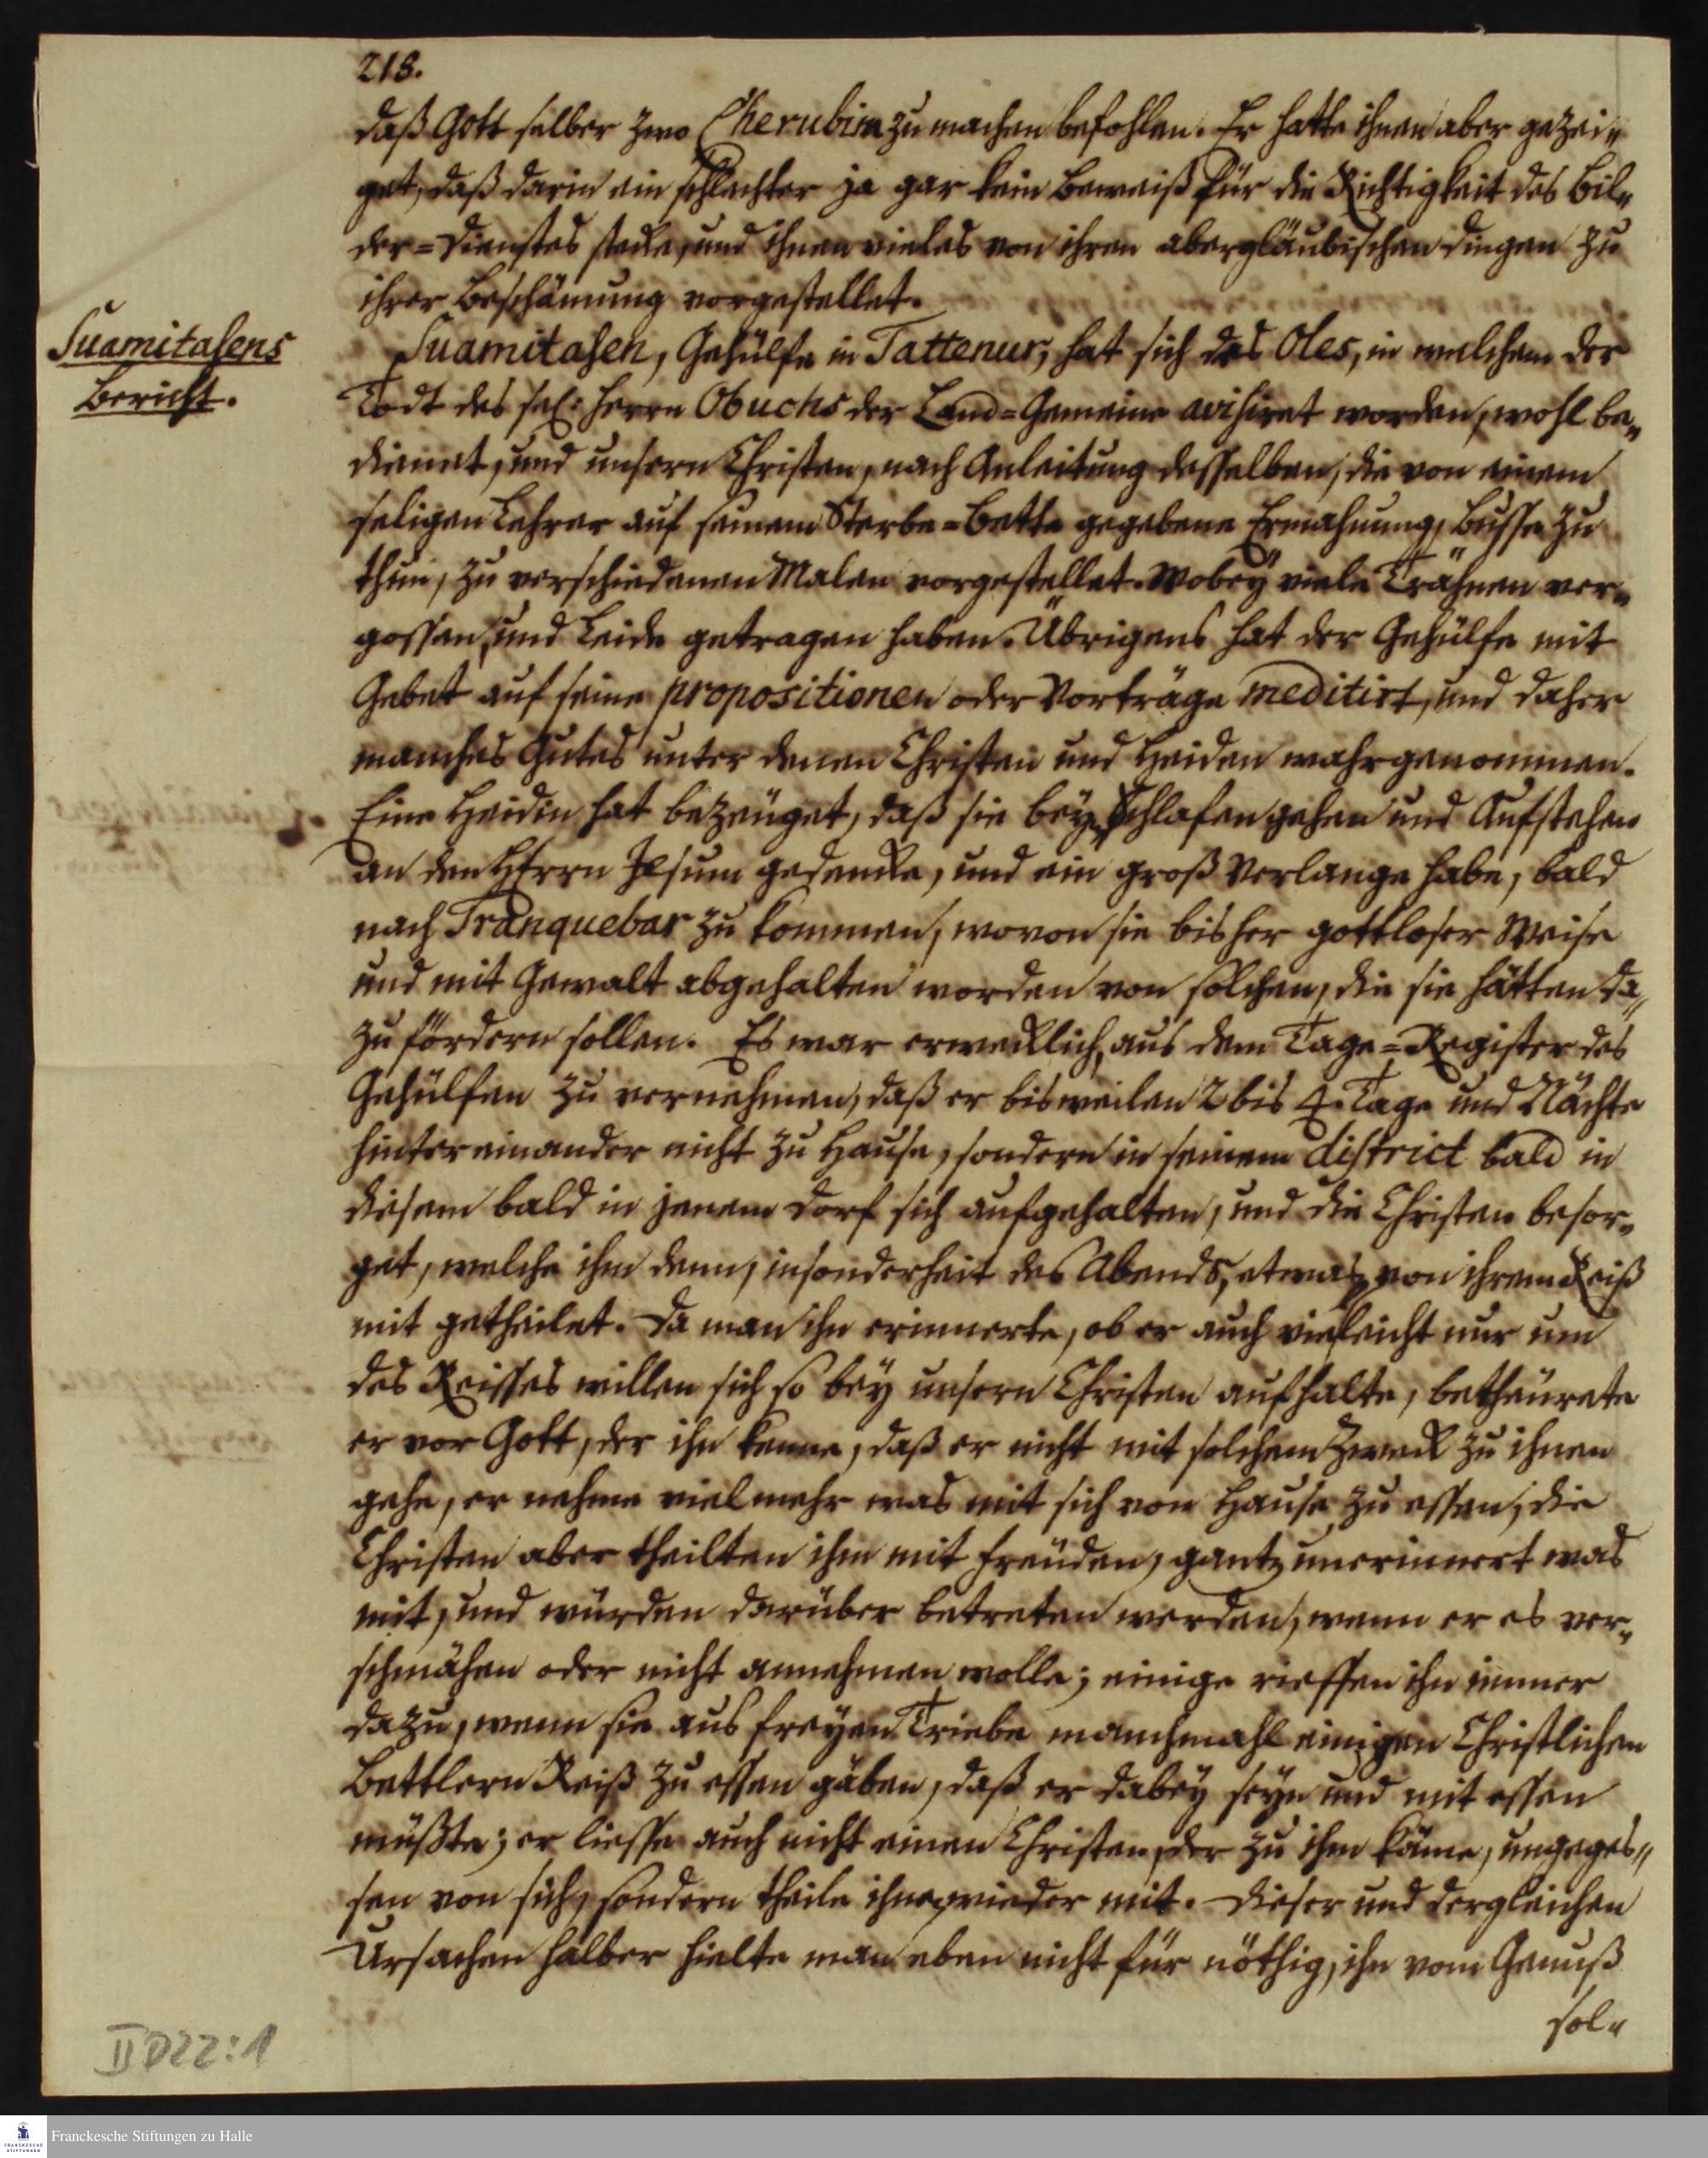 218.
daß Gott selber zwo Cherubim zu machen befohlen. Er hatte ihnen aber gezei„
get, daß darin ein schlechter ja gar kein Beweiß für die Richtigkeit des Bil„
der=Dienstes stecke, und ihnen vieles von ihren abergläubischen Dingen zu
ihrer Beschämung vorgestellet.
Suamitasens
Bericht.
Suamitasen, Gehülfe in Tattenur, hat sich des Oles, in welchem der
Todt des sel: Herrn Obuchs der Land=Gemeine avisiret worden, wohl be„
dienet, und unsern Christen, nach Anleitung desselben, die von einem
seligen Lehrer auf seinem Sterbe=Bette gegebene Ermahnung, Busse zu
thun, zu verschiedenen Malen vorgestellet. Wobey viele Trähnen ver„
gossen, und Leide getragen haben. Übrigens hat der Gehülfe mit
Gebet auf seine propositionen oder Vorträge meditirt, und daher
manches Gutes unter denen Christen und Heiden wahrgenommen.
Eine Heidin hat bezeüget, daß sie bey Schlafengehen und Aufstehen
an den HErrn JEsum gedencke, und ein groß Verlange habe, bald
nach Tranquebar zu kommen, wovon sie bisher gottloser Weise
und mit Gewalt abgehalten worden von solchen, die sie hätten da„
zu fördern sollen. Es war erwecklich, aus dem Tage=Register des
Gehülfen zu vernehmen, daß er bisweilen 2 bis 4. Tage und Nächte
hintereinander nicht zu Hause, sondern in seinem district bald in
diesem bald in jenem Dorf sich aufgehalten, und die Christen besor„
get, welche ihm denn, insonderheit des Abends, etwas von ihrem Reiß
mit getheilet. Da man ihn erinnerte, ob er auch vieleicht nur um
des Reisses willen sich so bey unsern Christen aufhalte, betheürete
er vor Gott, der ihn kenne, daß er nicht mit solchem Zweck zu ihnen
gehe, er nehme vielmehr was mit sich von Hause zu essen, die
Christen aber theilten ihm mit Freüden, gantz unerinnert was
mit, und würden darüber betreten werden, wenn er es ver„
schmähen oder nicht annehmen wolle; einige rieffen ihn immer
dazu, wenn sie aus freyen Triebe manchmahl einigen Christlichen
Bettlern Reiß zu essen gäben, daß er dabey seyn und mit essen
müßte; er liesse auch nicht einen Christen, der zu ihm käme, ungeges„
sen von sich, sondern theile ihnen wieder mit. Dieser und dergleichen
Ursachen halber hielte man eben nicht für nöthig, ihn vom Genuß
sol„
II D22:1
Franckesche Stiftungen zu Halle